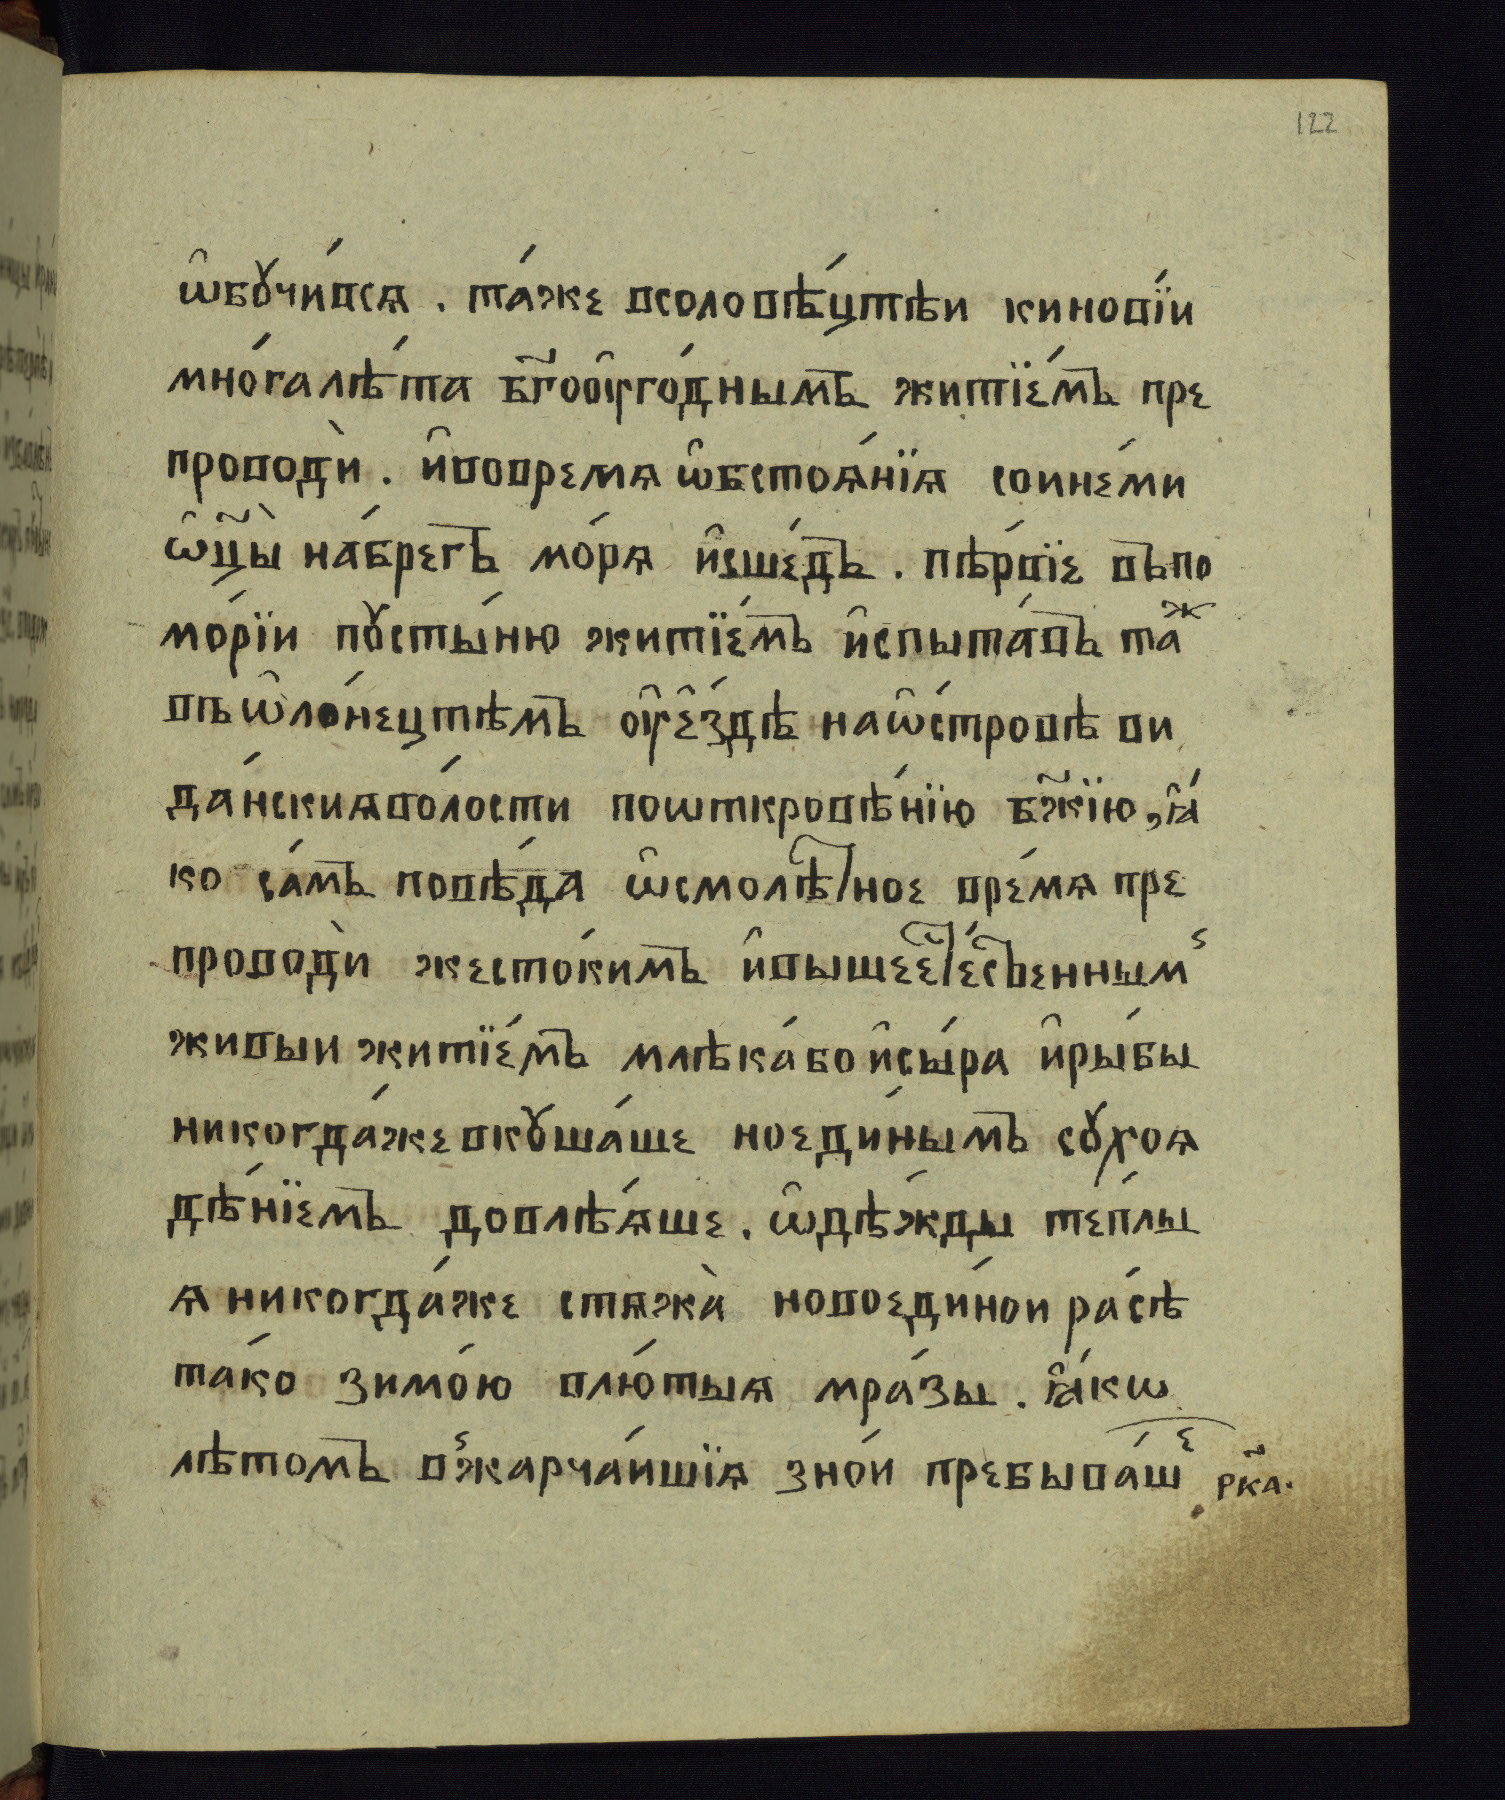 122
ѡ҆бꙋчи́всѧ . та́же всоловѣ́цтѣи кинові́и
мно́галѣ́та бг҃оᲂу҆го́днымъ житїе́мъ пре
проводѝ . и҆вовремѧ ѡ҆бстоѧ́нїѧ соинѣ́ми
ѻ҆ц҃ы̀ на́брегъ мо́рѧ и҆зше́дъ . пѣ́рвїе въпо
мо́рїи пꙋсты́ню житїе́мъ и҆спыта́въ та́ж
въѡ҆ло́нецтѣмъ ᲂу҆є҆́здѣ наѡ҆́стровѣ ви
да́нскиѧво́лости поѡткровѣ́нїю бж҃їю, ꙗ҆́
ко са́мъ повѣ́да ѡ҆смолѣ́тное вре́мѧ пре
проводѝ жесто́кимъ и҆вышеесте́ственным
живыи житїе́мъ млѣка́бо и҆сы́ра и҆ры́бы
никогда́же вкꙋша́ше ноеди́нымъ сꙋхоѧ
дѣ́нїемъ довлѣѧ́ше . ѡ҆дѣ́жды те́плы
ѧ никогда́же стѧжа̀ новоеди́нои ра́сѣ
та́ко зимо́ю влю́тыѧ мра́зы . ꙗ҆́кѡ
лѣтомъ вжарча́ишїѧ зно́и пребыва́ше
рк҃а.